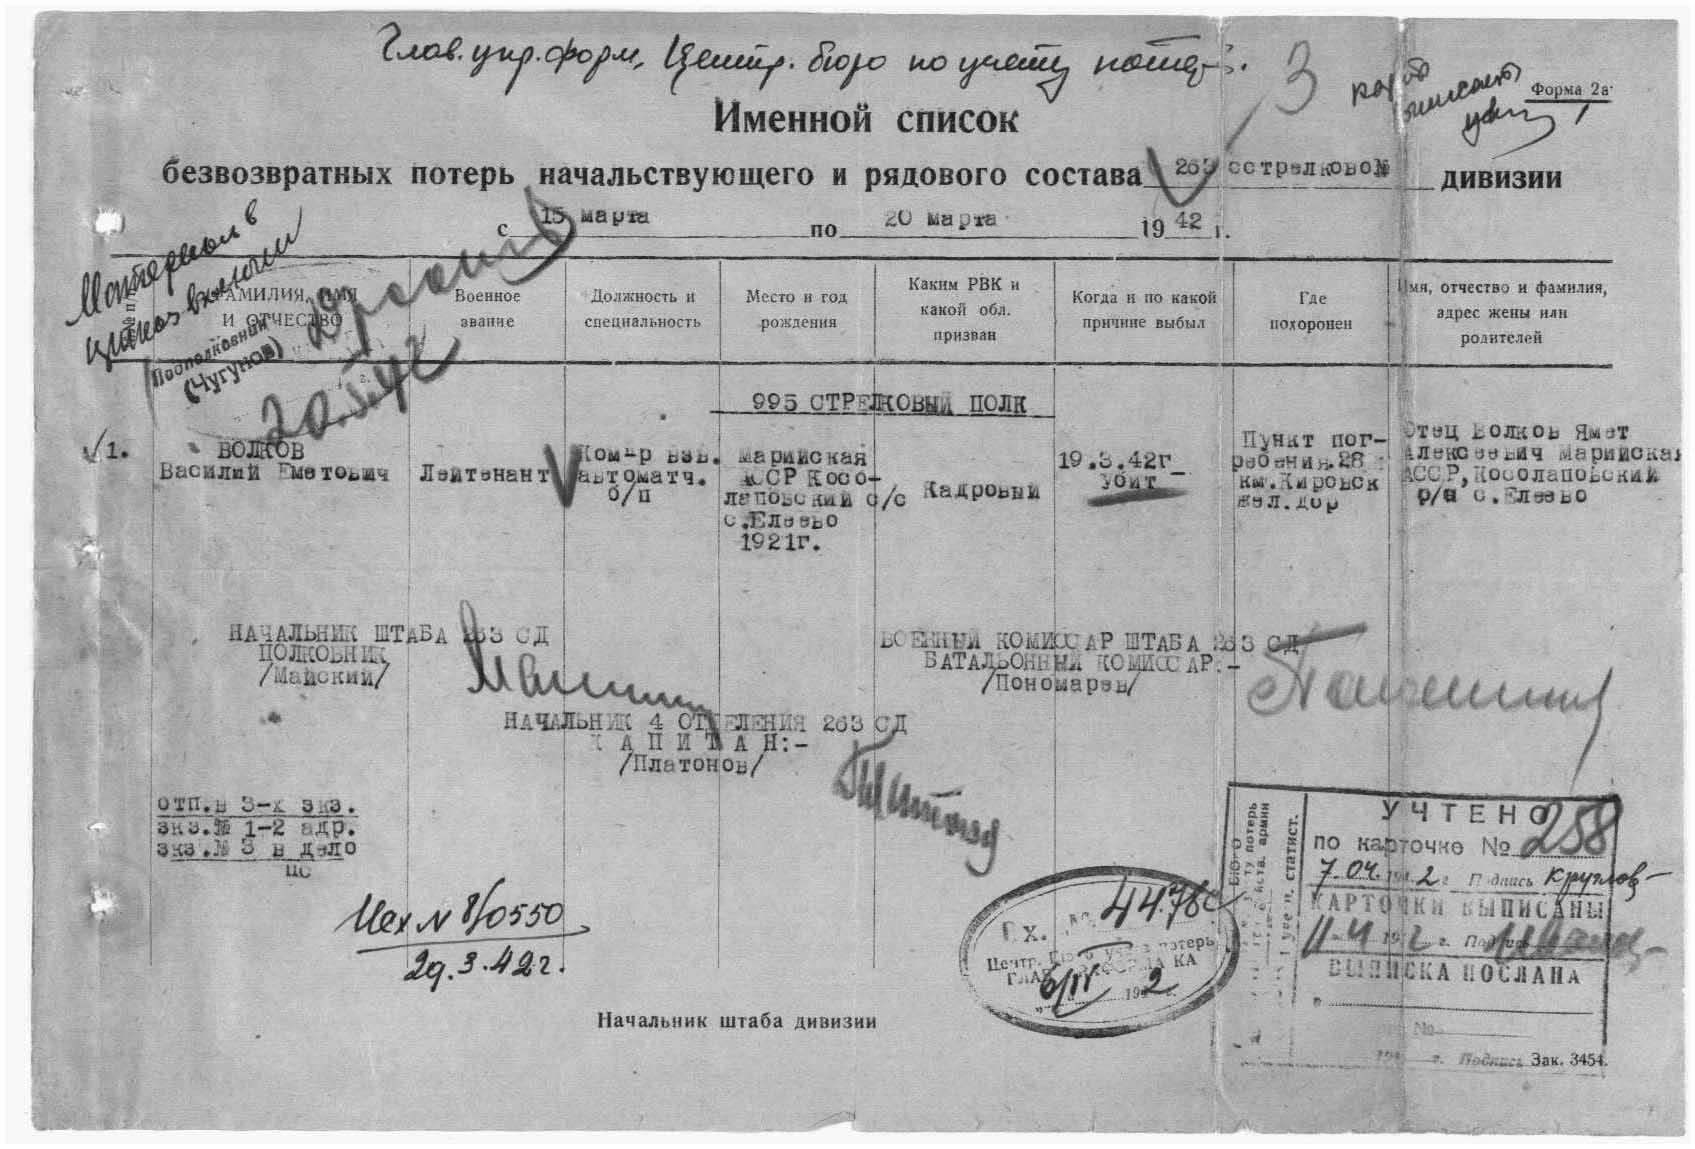 Глав. упр. форм, Центр. бюро по учету
3
Форма 2а
Именной список
безвозвратных потерь начальствующего и рядового состава 263 сстрелковой дивизии
с 15 марта по 20 марта 1942 г.
Материал в
Подполковник
(Чугунов)
ФАМИЛИЯ, ИМЯ
И ОТЧЕСТВО
Военное
звание
Должность и
специальность
Место и год
рождения
Каким РВК и
какой обл.
призван
Когда и по какой
причине выбыл
Где
похоронен
Имя, отчество и фамилия,
адрес жены или
родителей
995 СТРЕЛКОВЫЙ ПОЛК
1.
ВОЛКОВ
Василий Еметович
Лейтенант
Комыр взв.
автоматч.
б/п
Марийская
АССР Косо-
лаповский с/с
с.Елеево
1921г.
Кадровый
19.3.42г_
убит
Пункт пог-
ребения.28
км.Кировск
жел.дор
Отец Волков Ямет
Алексеевич Марийская
АССР,Косолаповский
р/н с.Елеево
НАЧАЛЬНИК ШТАБА 263 СД
ПОЛКОВНИК
/Майский/
ВОЕННЫЙ КОМИССАР ШТАБА 263 СД
БАТАЛЬОННЫЙ КОМИССАР:-
/Пономарев/
НАЧАЛЬНИК 4 ОТДЕЛЕНИЯ 263 СД
КАПИТАН:-
/Платонов/
отп.в 3-х экз.
экз.№ 1-2 адр.
экз.№ 3 в дело
пс
Исх N 8/0550
29.3.42г.
Вх. № 4478с
Центр. Бюро учета потерь
6/IV 1942
УЧТЕНО
по карточке № 258
7.04.1942 г. Подпись Круглов
КАРТОЧКИ ВЫПИСАНЫ
11.4 1942 г. Подпись
ВЫПИСКА ПОСЛАНА
в
№
194 г. Подпись
Зак. 3454.
Начальник штаба дивизии